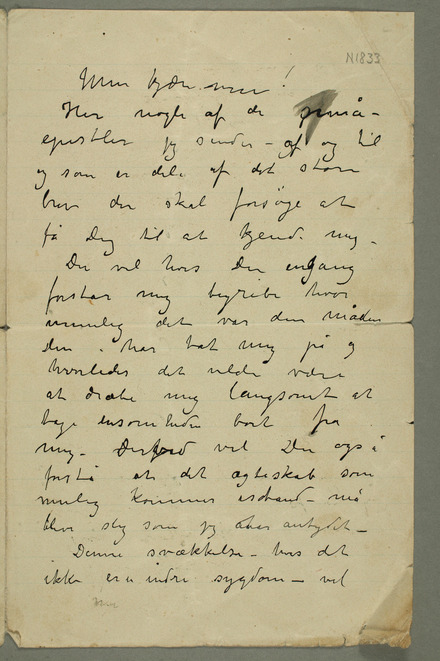 N1833
Min kjære ven!
Her nogle af de små-
epistler jeg sender af og til
og som er dele af det store
brev der skal forsøge at
få Dig til at kjende mig.
Du vil hvis Du engang
forstår mig begribe hvor
umulig det var den måden
Du har bat mig på og
hvorledes det vilde være
at dræbe mig langsomt at
tage ensomheden bort fra
mig. Derfor vil Du også
forstå at det ægteskab som
mulig kommer istand må
blive slig som jeg antydet
Denne svækkelse – hvis det
ikke er en indre sygdom – vil